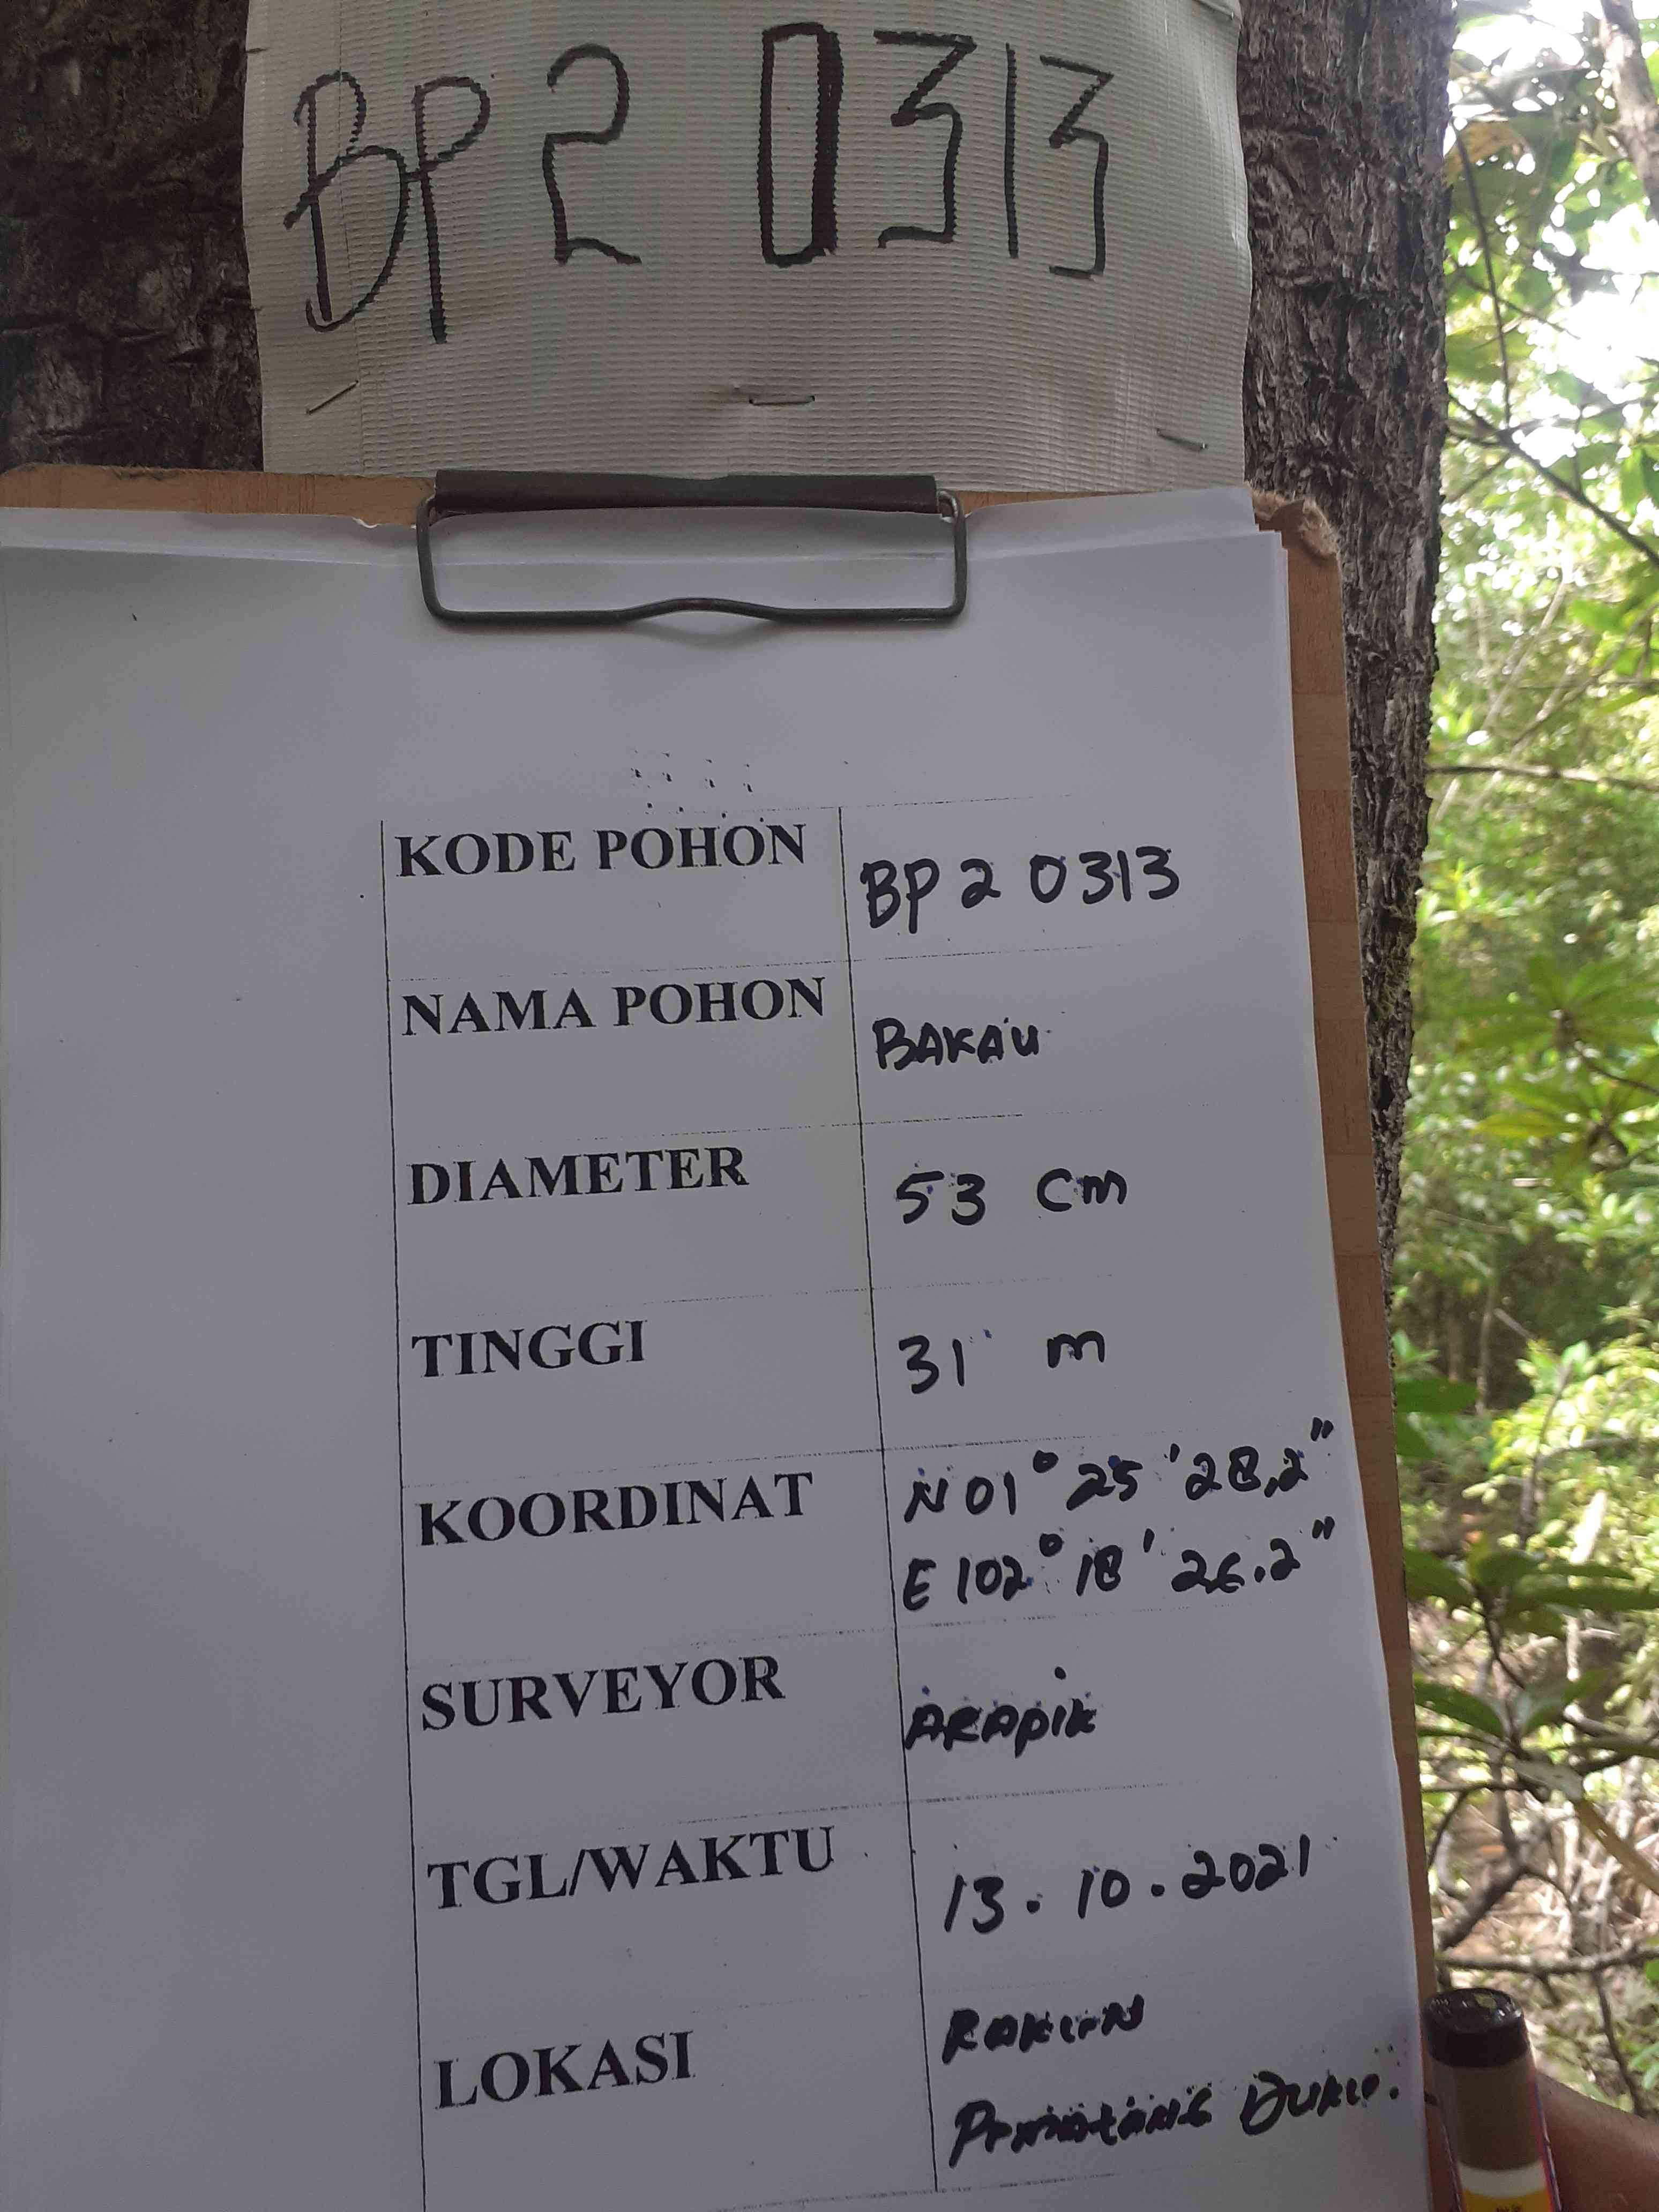 BP 2 0313
KODE POHON BP 2 0313
NAMA POHON BAKAU
DIAMETER 53 cm
TINGGI 31 m
KOORDINAT N 01° 25' 28,2"
E 102° 18' 26.2"
SURVEYOR ARApik
TGL/WAKTU 13.10.2021
LOKASI